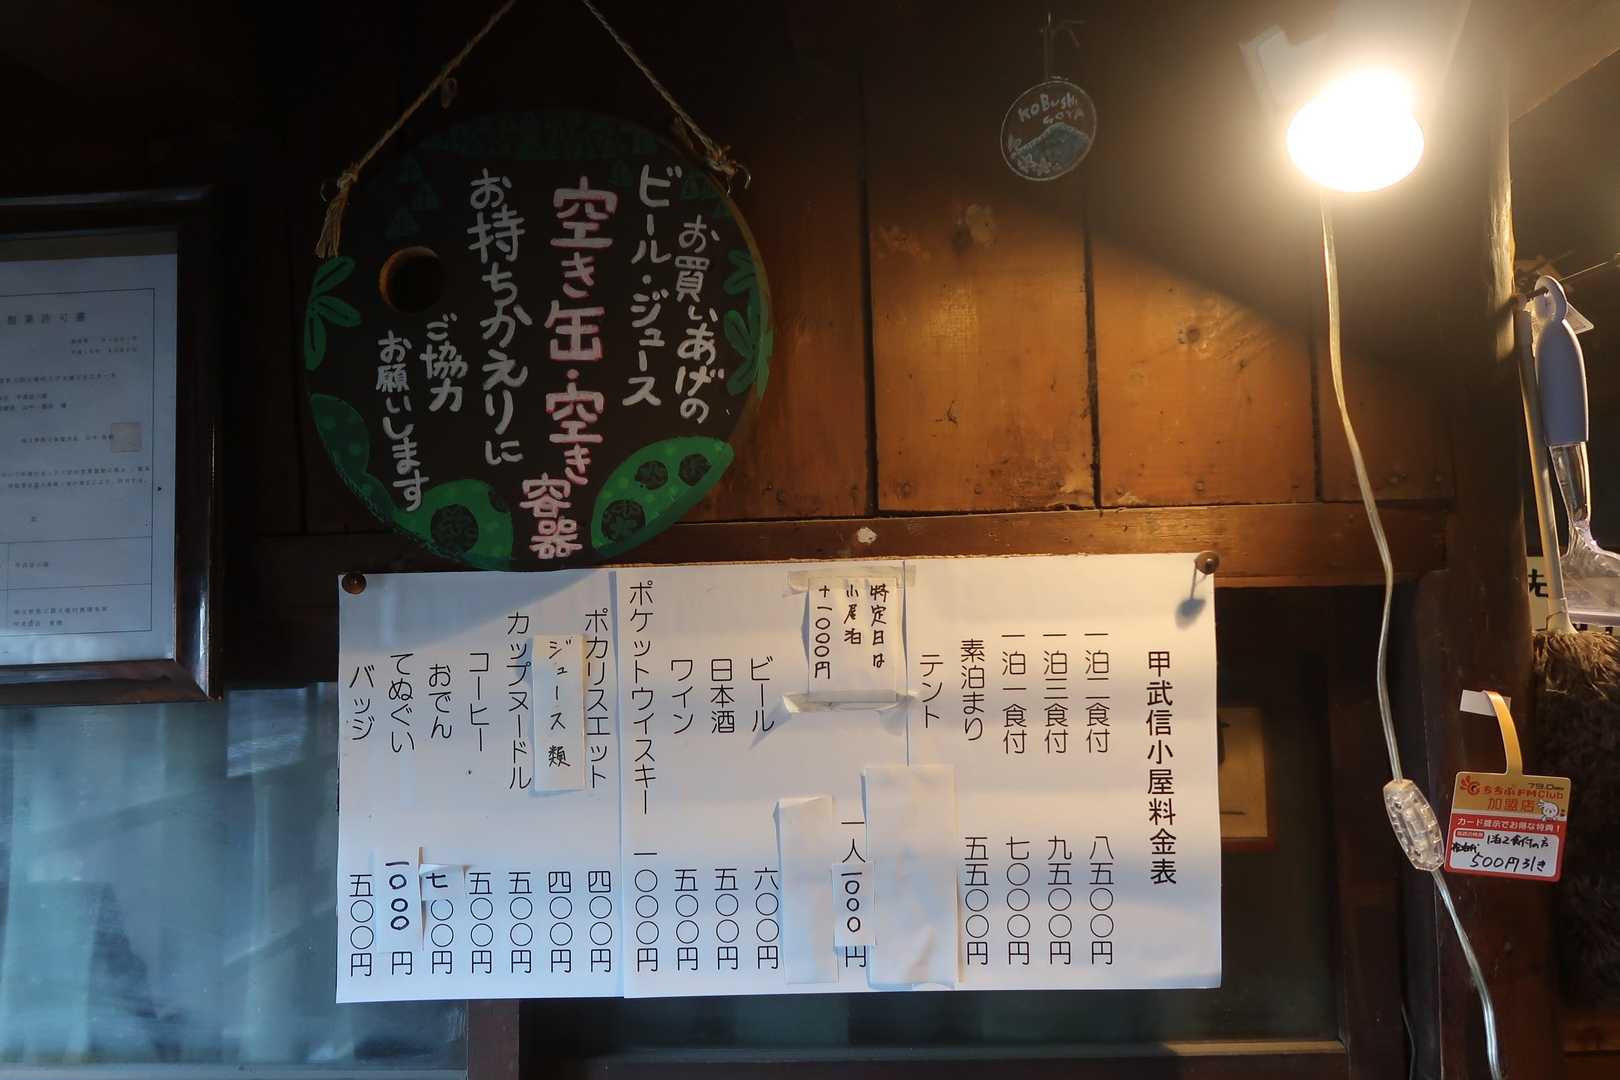 お買いあげの
ビール・ジュース
空き缶・空き容器
お持ちかえりに
ご協力
お願いします
KOBUSHI
GOYA
甲武信小屋料金表
一泊二食付 八五〇〇円
一泊三食付 九五〇〇円
一泊一食付 七〇〇〇円
素泊まり 五五〇〇円
テント 一人 1000円
特定日は
小屋泊
+1000円
ビール 六〇〇円
日本酒 五〇〇円
ワイン 五〇〇円
ポケットウイスキー 一〇〇〇円
ポカリスエット 四〇〇円
ジュース類 四〇〇円
カップヌードル 五〇〇円
コーヒー 五〇〇円
おでん 七〇〇円
てぬぐい 1000円
バッジ 五〇〇円
営業許可書
79.0MHz
ちちぶFMClub
加盟店
カード提示でお得な特典！
1泊2食付の方
500円引き